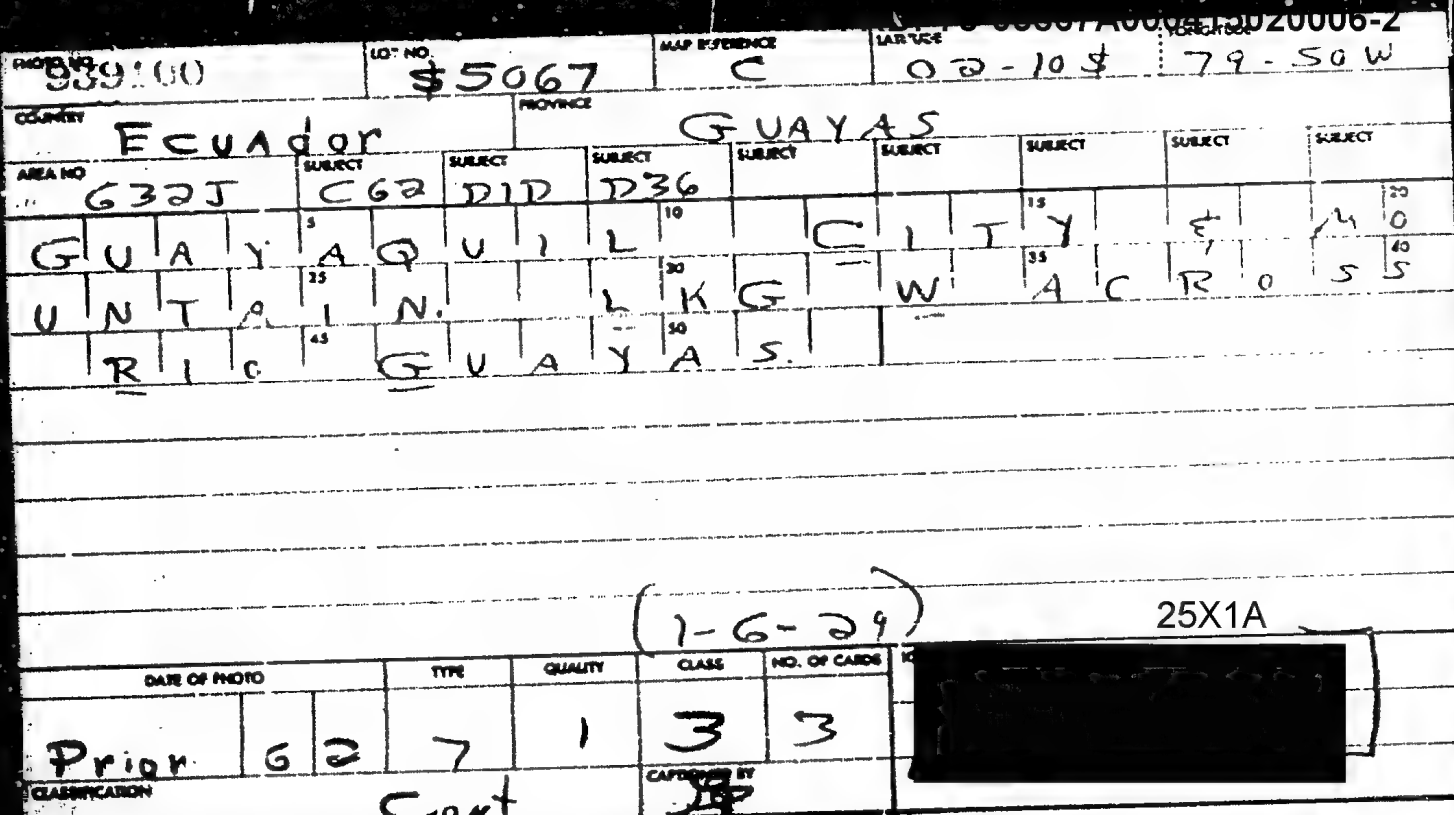 020006-2
PHOTO NO. 939100 LOT NO. $5067 MAP REFERENCE C LATITUDE 02-10 $ LONGITUDE 79-50 W
COUNTRY Ecuador PROVINCE GUAYAS
AREA NO 632J SUBJECT C62 SUBJECT D1D SUBJECT D36 SUBJECT SUBJECT SUBJECT SUBJECT SUBJECT
GUAYAQUIL CITY & MO
5 10 15 20
UNTAIN. LKG W ACROSS
25 30 35 40
RIO GUAYAS.
45 50
(1-6-29)
25X1A
DATE OF PHOTO TYPE QUALITY CLASS NO. OF CARDS
Prior 62 7 1 3 3
CLASSIFICATION CAPTIONED BY